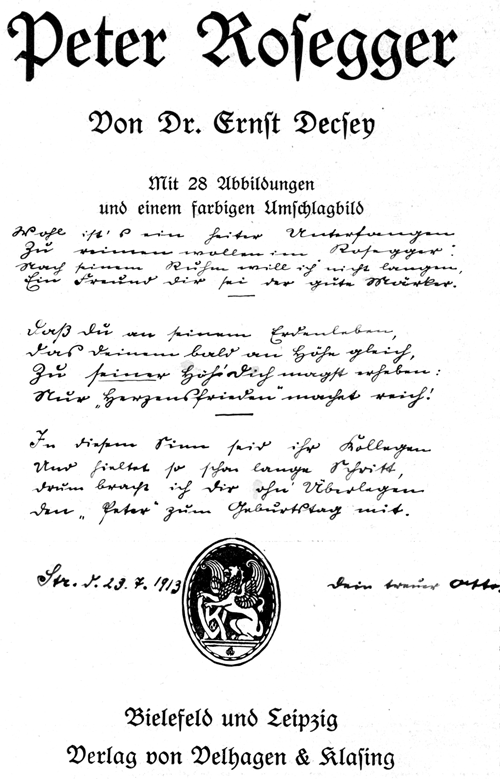 Peter Rosegger
Von Dr. Ernst Decsey
Mit 28 Abbildungen
und einem farbigen Umschlagbild
Wohl ist's ein heiter Unterfangen
Zu reimen wollen im Rosegger:
Nach seinem Ruhm will ich nicht langen,
Ein Freund dir sei der gute Märker.
Daß du an seinem Erdenleben,
das deinem bald an Höhe gleich,
Zu seiner Höh' dich magst erheben:
Nur "Herzensfrieden" machet reich!
In diesem Sinn seid ihr Kollegen
Und hieltet so schon lange Schritt,
drum bracht ich dir ohn' Überlegen
den "Peter" zum Geburtstag mit.
Str. d. 23. 7. 1913
Dein treuer Otto.
Bielefeld und Leipzig
Verlag von Velhagen & Klasing